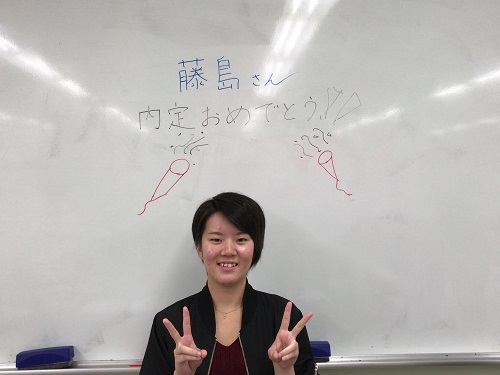 藤島さん
内定おめでとう!!